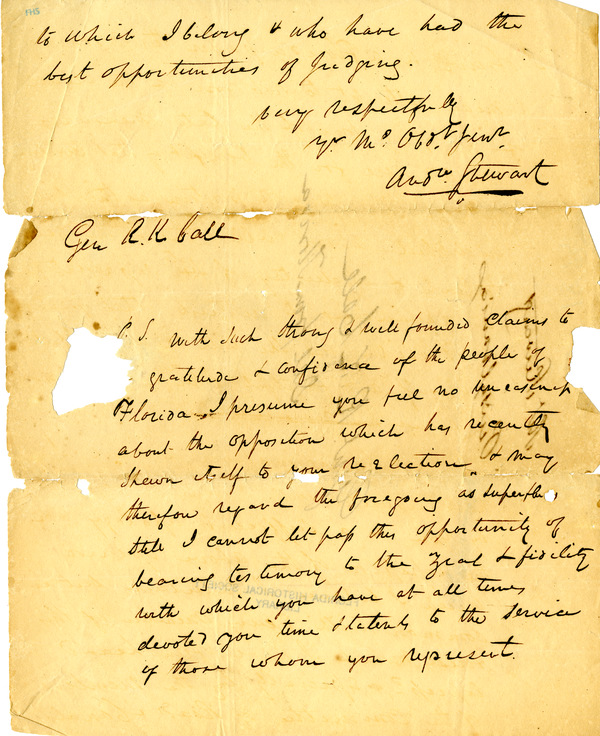 FHS
to which I belong & who have had the
best opportunities of judging.
very respectfully
Yr Mo. Obdt. Servt.
Andw. Stewart
Gen R. K. Call
P.S. with such strong & well founded claims to
gratitude & confidence of the people of
Florida I presume you feel no uneasiness
about the opposition which has recently
shewn itself to your reelection, & may
therefore regard the foregoing as superflu
still I cannot let pass this opportunity of
bearing testimony to the zeal & fidility
with which you have at all times
devoted you time & talents to the service
of those whom you represent.
FLORIDA HISTORICAL SOCIETY
LIBRARY